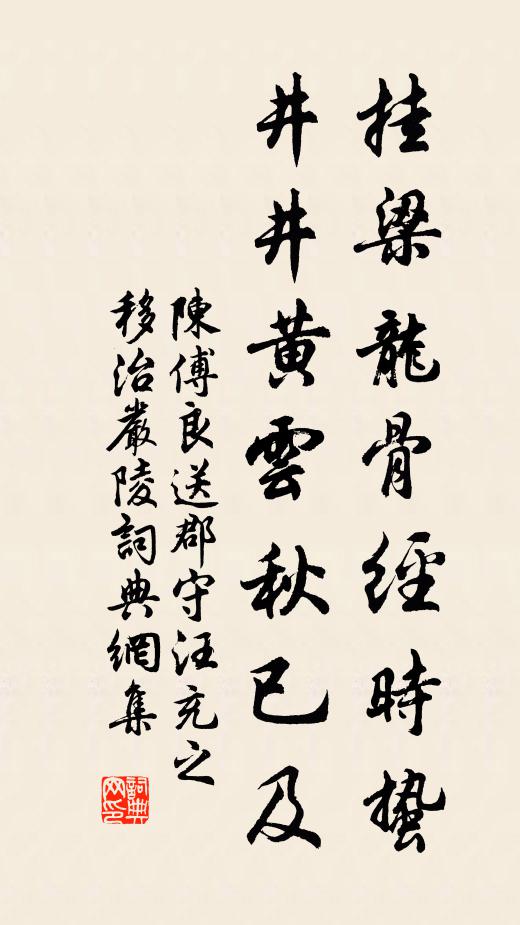 挂梁龍骨經時蟄
井井黃雲秋已及
陳傅良送郡守汪充之
移治嚴陵詞典網集
詞典網印